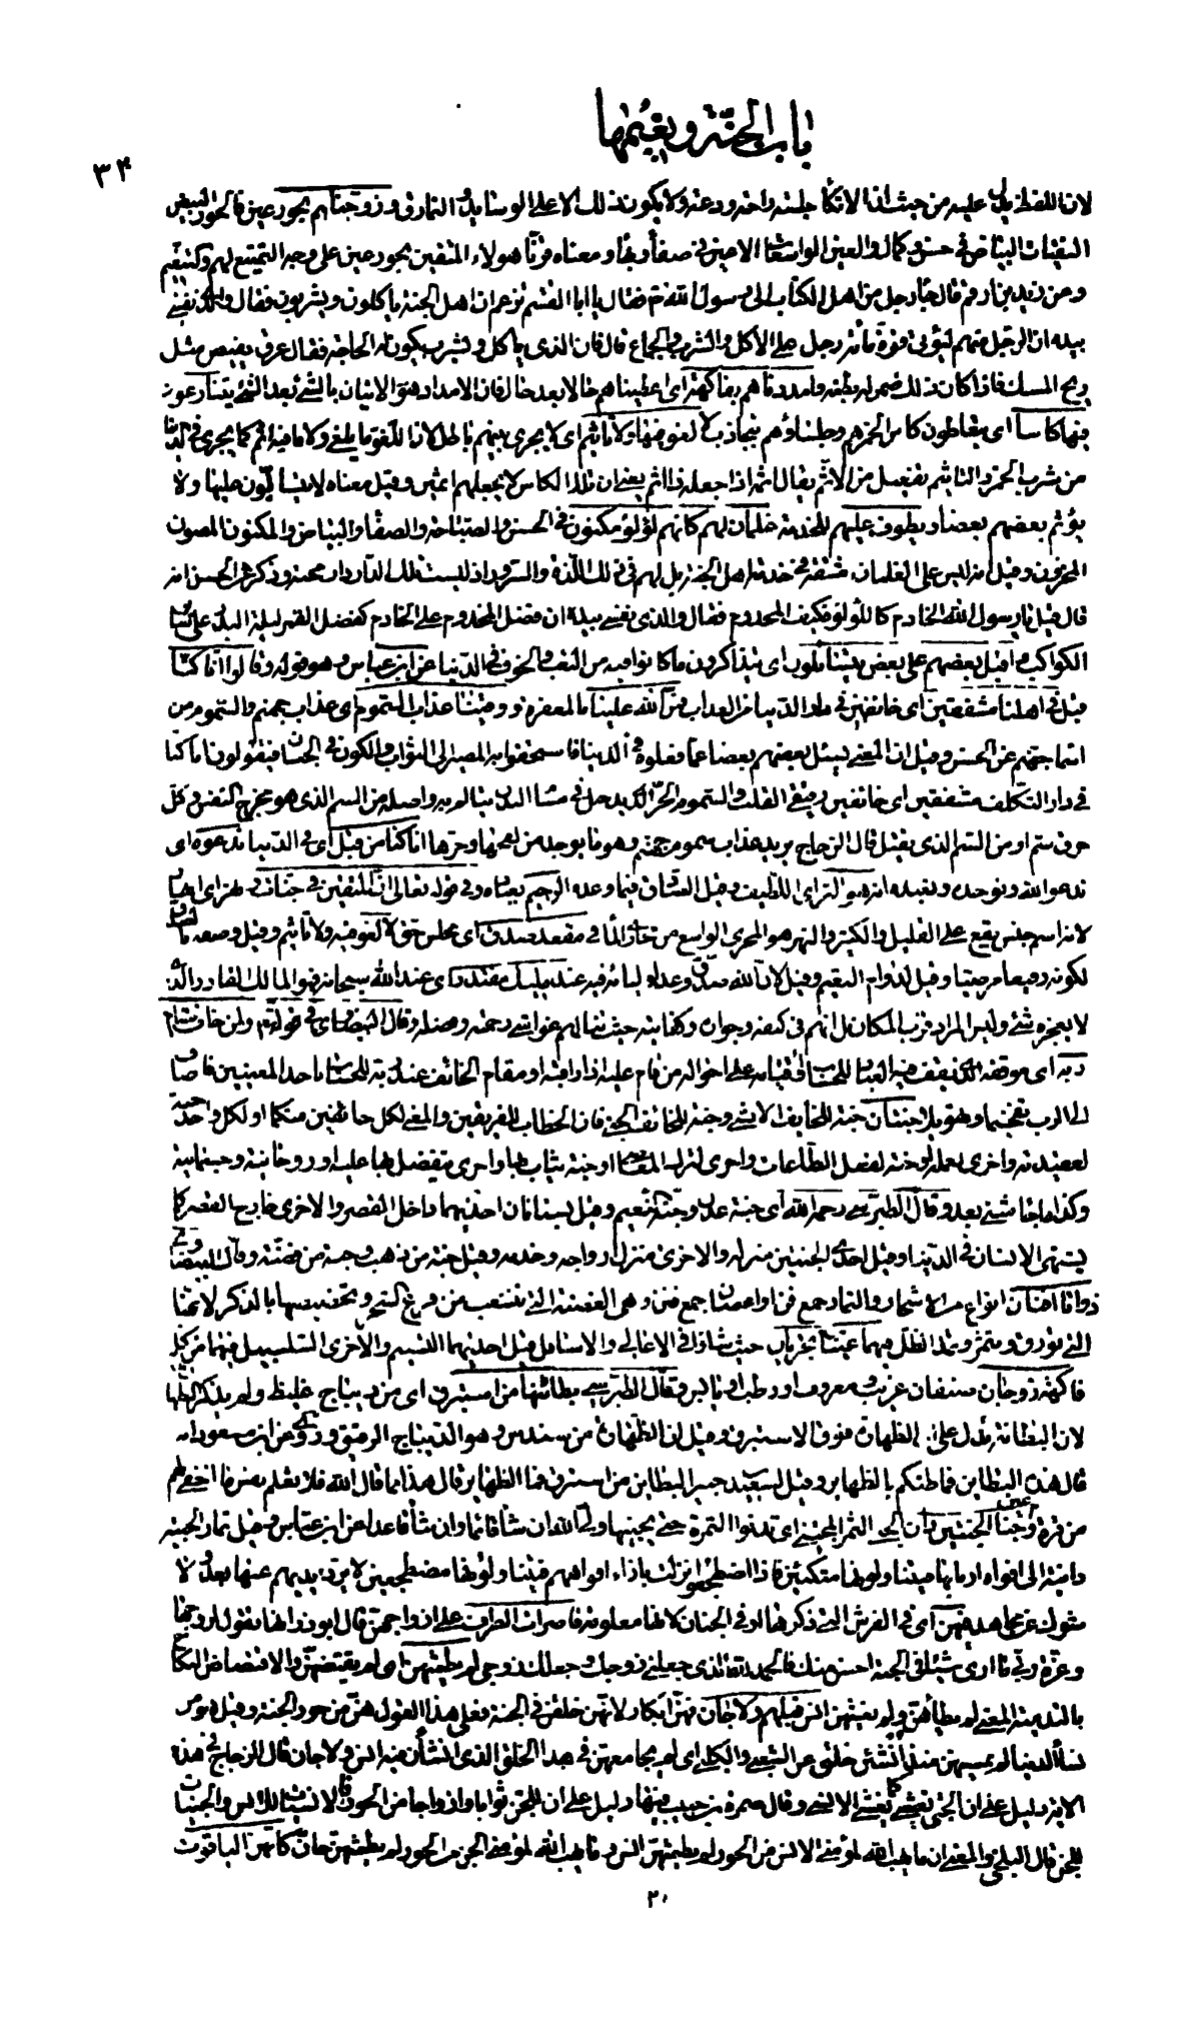 باب الجنة ونعيمها
٣٤
لان اللفظ يدل عليه من حيث ان الاتكاء جلسة راحة ودعة ولا يكون ذلك الا على الوسايد النمارق وزوجناهم بحور عين فالحور البيض
النقيات البياض في حسن وكمال والعين الواسعات الاعين في صفاء وبهاء ومعناه قرنا هؤلاء المتقين بحور عين على وجه التمتيع لهم وتنعيم
وعن زيد بن ارقم قال جاء رجل من اهل الكتاب الى رسول الله ص فقال يا ابا القسم تزعم ان اهل الجنة ياكلون ويشربون فقال والذي نفسي
بيده ان الرجل منهم ليؤتى قوة مأة رجل على الأكل والشرب والجماع قال فان الذي ياكل ويشرب يكون له الحاجة فقال عرق يفيض مثل
ريح المسك فاذا كان ذلك ضمر له بطنه وامددناهم بفاكهة اي اعطيناهم حالا بعد حال فان الامداد هو الاتيان بالشئ بعد الشئ يتنازعون
فيها كاسا اي يتعاطون كاس الخمر هم وجلساؤهم بتجاذب لا لغو فيها ولا تأثيم اي لا يجري بينهم باطل لان اللغو ما يلغى ولا ما فيه اثم كما يجري في الدنيا
من شرب الخمر والتاثيم تفعيل من الاثم يقال اثمه اذا جعله ذا اثم يعني ان تلك الكاس لا يجعلهم اثمين وقيل معناه لا يتسابون عليها ولا
يؤثم بعضهم بعضا ويطوف عليهم للخدمة غلمان لهم كانهم لؤلؤ مكنون في الحسن والصباحة والصفاء والبياض والمكنون المصون
المخزون وقيل انه ليس على الغلمان مشقة في خدمة اهل الجنة بل لهم في ذلك اللذة والسرور اذ ليست تلك الدار دار محنة وذكر عن الحسن انه
قال قيل يا رسول الله الخادم كاللؤلؤ فكيف المخدوم فقال والذي نفسي بيده ان فضل المخدوم على الخادم كفضل القمر ليلة البدر على سائر
الكواكب واقبل بعضهم على بعض يتسائلون اي يتذاكرون ما كانوا فيه من التعب والخوف في الدنيا عن ابن عباس وهو قوله قالوا انا كنا
قبل في اهلنا مشفقين اي خائفين في دار الدنيا من العذاب فمن الله علينا بالمغفرة ووقينا عذاب السموم اي عذاب جهنم والسموم من
اسماء جهنم عن الحسن وقيل ان المعنى يسئل بعضهم بعضا عما فعلوه في الدنيا فاستحقوا به المصير الى الثواب والكون في الجنان فيقولون انا كنا
في دار التكليف مشفقين اي خائفين رقيقي القلب والسموم الحر الذي يدخل في مسام البدن يتالم به واصله من السم الذي هو مخرج النفس وكل
خرق سم او من السم الذي يقتل قال الزجاج يريد عذاب سموم جهنم وهو ما يوجد من لفحها وحرها انا كنا من قبل اي في الدنيا ندعوه اي
ندعو الله ونوحده ونعبده انه هو البر اي اللطيف وقيل الصادق فيما وعده الرحيم بعباده وفي قوله تعالى ان المتقين في جنات ونهر اي انهار
لانه اسم جنس يقع على القليل والكثير والنهر هو المجرى الواسع من مجاري الماء في مقعد صدق اي مجلس حق لا لغو فيه ولا تأثيم وقيل وصفه بالصدق
لكونه رفيعا مرضيا وقيل لدوام النعيم وقيل لان الله صدق وعد اوليائه فيه عند مليك مقتدر اي عند الله سبحانه فهو المالك القادر الذي
لا يعجزه شئ وليس المراد قرب المكان بل انهم في كنفه وجواره وكفايته حيث تنالهم غواشي رحمته وفضله وقال البيضاوي في قوله تم ولمن خاف مقام
ربه اي موقفه الذي يقف فيه العباد للحساب او قيامه على احواله من قام عليه اذا راقبه او مقام الخائف عند ربه للحساب باحد المعنيين فاضاف
الى الرب تفخيما وتهويلا جنتان جنة للخايف الانسي وجنة للخائف الجني فان الخطاب للفريقين والمعنى لكل خائفين منكما او لكل واحد جنة
لعقيدته واخرى لعمله او جنة لفعل الطاعات واخرى لترك المعاصي او جنة يثاب بها واخرى يتفضل بها عليه او روحانية وجسمانية
وكذا ما جاء مثنى بعد وقال الطبرسي رحمه الله اي جنة عدن وجنة نعيم وقيل بستانان احديهما داخل القصر والاخرى خارج القصر كما
يشتهي الانسان في الدنيا وقيل احدى الجنتين منزله والاخرى منزل ازواجه وخدمه وقيل جنة من ذهب وجنة من فضة وقال البيضاوي
ذواتا افنان انواع من الاشجار والثمار جمع فن او اغصان جمع فنن وهي الغصنة التي تتشعب من فرع الشجر وتخصيصها بالذكر لانها
التي تورق وتثمر وتمد الظل فيهما عينان تجريان حيث شاؤا في الاعالي والاسافل قيل احديهما التسنيم والاخرى السلسبيل فيهما من كل
فاكهة زوجان صنفان غريب ومعروف او رطب ويابس وقال الطبرسي بطائنها من استبرق اي من ديباج غليظ ولم يذكر الظهارة
لان البطانة تدل على ان الظهارة فوق الاستبرق وقيل ان الظهارة من سندس وهو الديباج الرقيق وروي عن ابن مسعود انه
قال هذه البطاين فما ظنكم بالظهاير وقيل لسعيد بن جبير البطاين من استبرق فما الظهاير قال هذا مما قال الله فلا تعلم نفس ما اخفي لهم
من قرة اعين وجنا الجنتين دان الجنا الثمر المجتنى اي تدنوا الثمرة حتى يجتنيها ولي الله ان شاء قائما وان شاء قاعدا عن ابن عباس وقيل ثمار الجنة
دانية الى افواه اربابها فيتناولونها متكئين فاذا اضطجعوا نزلت بازاء افواههم فيتناولونها مضطجعين لا يرد ايديهم عنها بعد ولا
شوك عن مجاهد فيهن اي في الفرش التي ذكرها او في الجنان لانها معلومة قاصرات الطرف على ازواجهن قال ابو ذر انها تقول لزوجها
وعزة ربي ما ارى شيئا في الجنة احسن منك فالحمد لله الذي جعلني زوجك وجعلك زوجي لم يطمثهن اي لم يقتضهن والاقتضاض النكاح
بالتدمية المعنى لم يطأهن ولم يغشهن انس قبلهم ولا جان فهن ابكار لانهن خلقن في الجنة فعلى هذا القول هن من حور الجنة وقيل هن من
نساء الدنيا لم يمسسهن منذ انشئن خلق عن الشعبي والكلبي اي لم يجامعهن في هذا الخلق الذي انشأن فيه انس ولا جان قال الزجاج في هذه
الاية دليل على ان الجني يغشى كما يغشى الانسي وقال ضمرة بن حبيب فيها دليل على ان للجن ثوابا وازواجا من الحور فالانسيات للانس والجنيات
للجن قال البلخي والمعنى ان ما يهب الله لمؤمني الانس من الحور لم يطمثهن انس وما يهب الله لمؤمني الجن من الحور لم يطمثهن جان كانهن الياقوت
٢٠